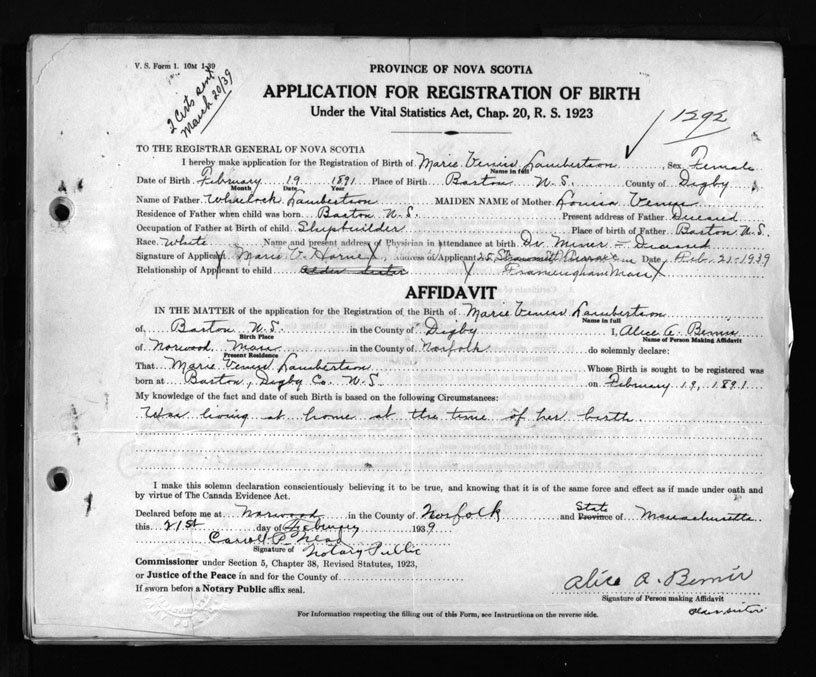 V. S. Form 1. 10M 1-39
2 Certs sent
March 20/39
PROVINCE OF NOVA SCOTIA
APPLICATION FOR REGISTRATION OF BIRTH
Under the Vital Statistics Act, Chap. 20, R. S. 1923
TO THE REGISTRAR GENERAL OF NOVA SCOTIA
I hereby make application for the Registration of Birth of Marie Lambertson Sex Female
Name in full
Date of Birth February 19 1891 Place of Birth Barton N.S. County of Digby
Month Date Year
Name of Father Wheelock Lambertson MAIDEN NAME of Mother Louisa
Residence of Father when child was born Barton N.S. Present address of Father Deceased
Occupation of Father at Birth of child Shipbuilder Place of birth of Father Barton N.S.
Race White Name and present address of Physician in attendance at birth Dr. Miner - Deceased
Signature of Applicant Marie V. Address of Applicant 25 Date Feb. 21-1939
Relationship of Applicant to child Older Sister X Framingham Mass X
AFFIDAVIT
IN THE MATTER of the application for the Registration of the Birth of Marie Lambertson
Name in full
of Barton N.S. in the County of Digby I, Alice A.
Birth Place Name of Person Making Affidavit
of Norwood, Mass in the County of Norfolk do solemnly declare:
Present Residence
That Marie Lambertson Whose Birth is sought to be registered was
born at Barton, Digby Co. N.S. on February 19, 1891
My knowledge of the fact and date of such Birth is based on the following Circumstances:
Was living at home at the time of her birth
I make this solemn declaration conscientiously believing it to be true, and knowing that it is of the same force and effect as if made under oath and
by virtue of The Canada Evidence Act.
Declared before me at Norwood in the County of Norfolk and Province State of Massachusetts
this 21st day of February 1939
Signature of Notary Public
Commissioner under Section 5, Chapter 38, Revised Statutes, 1923,
or Justice of the Peace in and for the County of
If sworn before a Notary Public affix seal.
Alice A.
Signature of Person making Affidavit
older sister
For Information respecting the filling out of this Form, see Instructions on the reverse side.